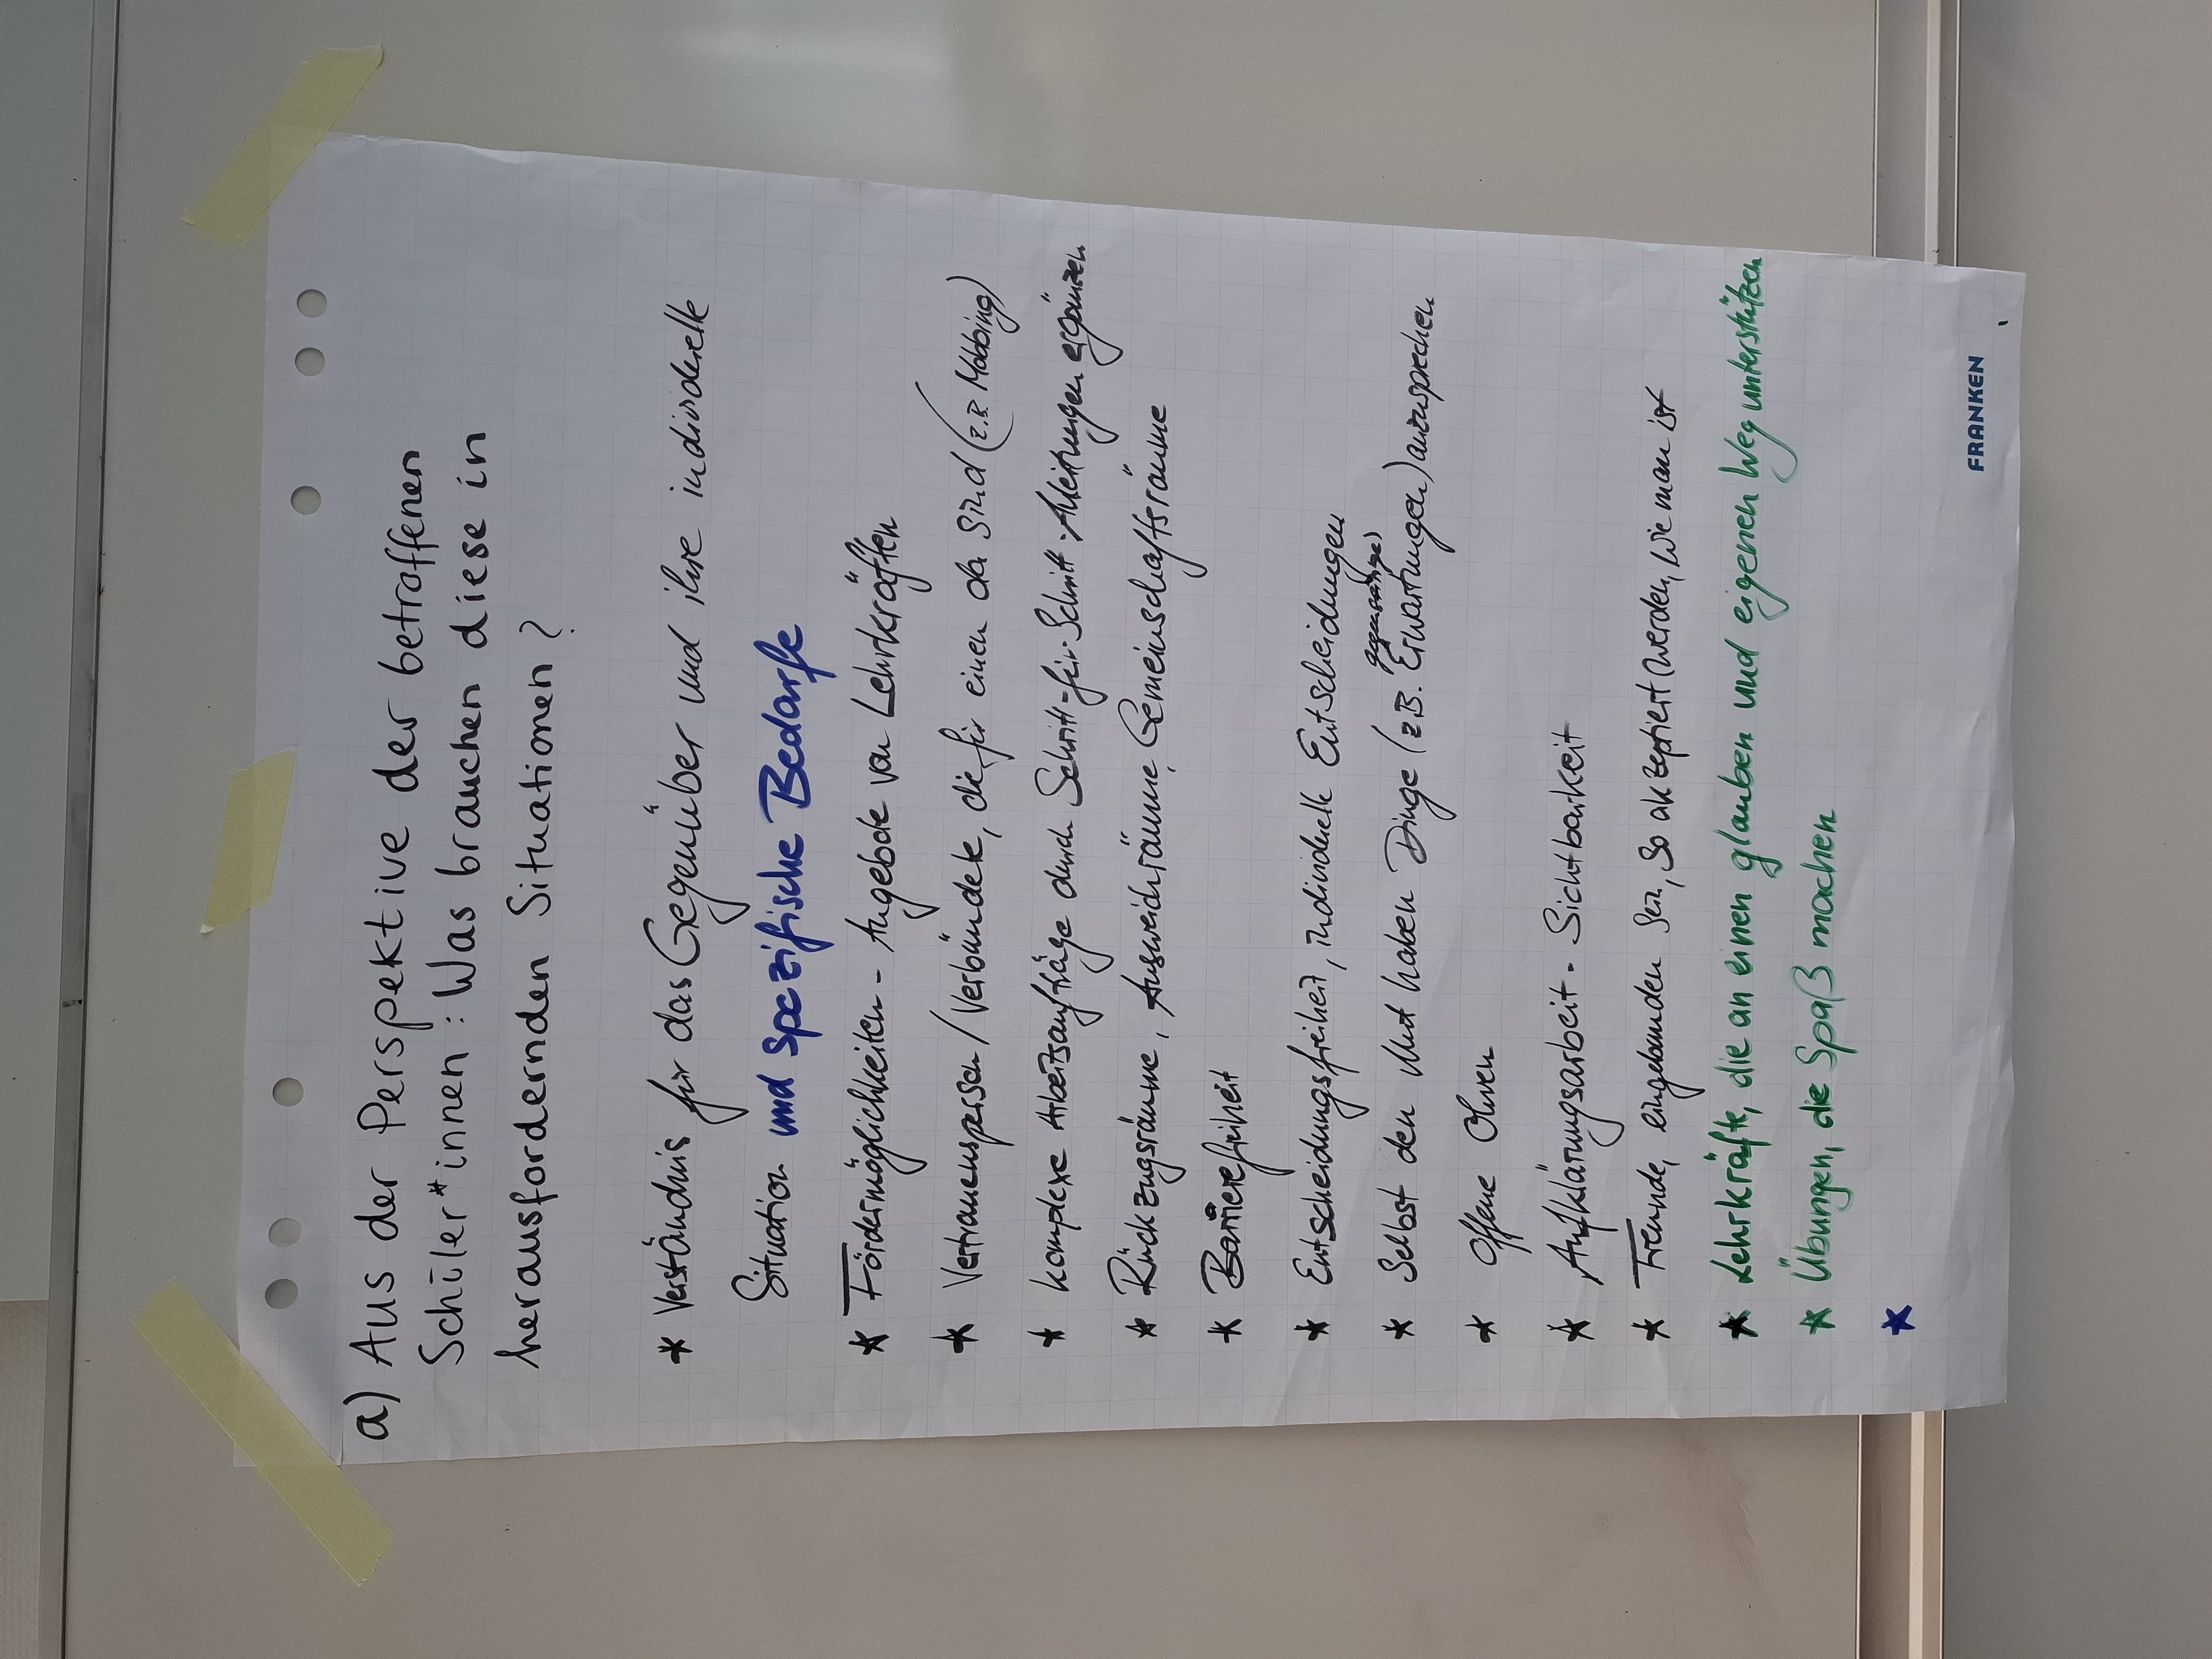 a) Aus der Perspektive der betroffenen
Schüler*innen: Was brauchen diese in
herausfordernden Situationen?
* Verständnis für das Gegenüber und ihre individuelle
Situation und spezifische Bedarfe
* Fördermöglichkeiten - Angebote von Lehrkräften
* Vertrauensperson/Verbündete, die für einen da sind (z.B. Mobbing)
* komplexe Arbeitsaufträge durch Schritt-für-Schritt-Anleitungen ergänzen
* Rückzugsräume, Ausweichräume, Gemeinschaftsräume
* Barrierefreiheit
* Entscheidungsfreiheit, individuelle Entscheidungen
* Selbst den Mut haben Dinge (z.B. Erwartungen) anzusprechen
* Offene Ohren
* Aufklärungsarbeit - Sichtbarkeit
* Freunde, eingebunden sein, so akzeptiert werden, wie man ist
* Lehrkräfte, die an einen glauben und eigenen Weg unterstützen
* Übungen, die Spaß machen
*
FRANKEN